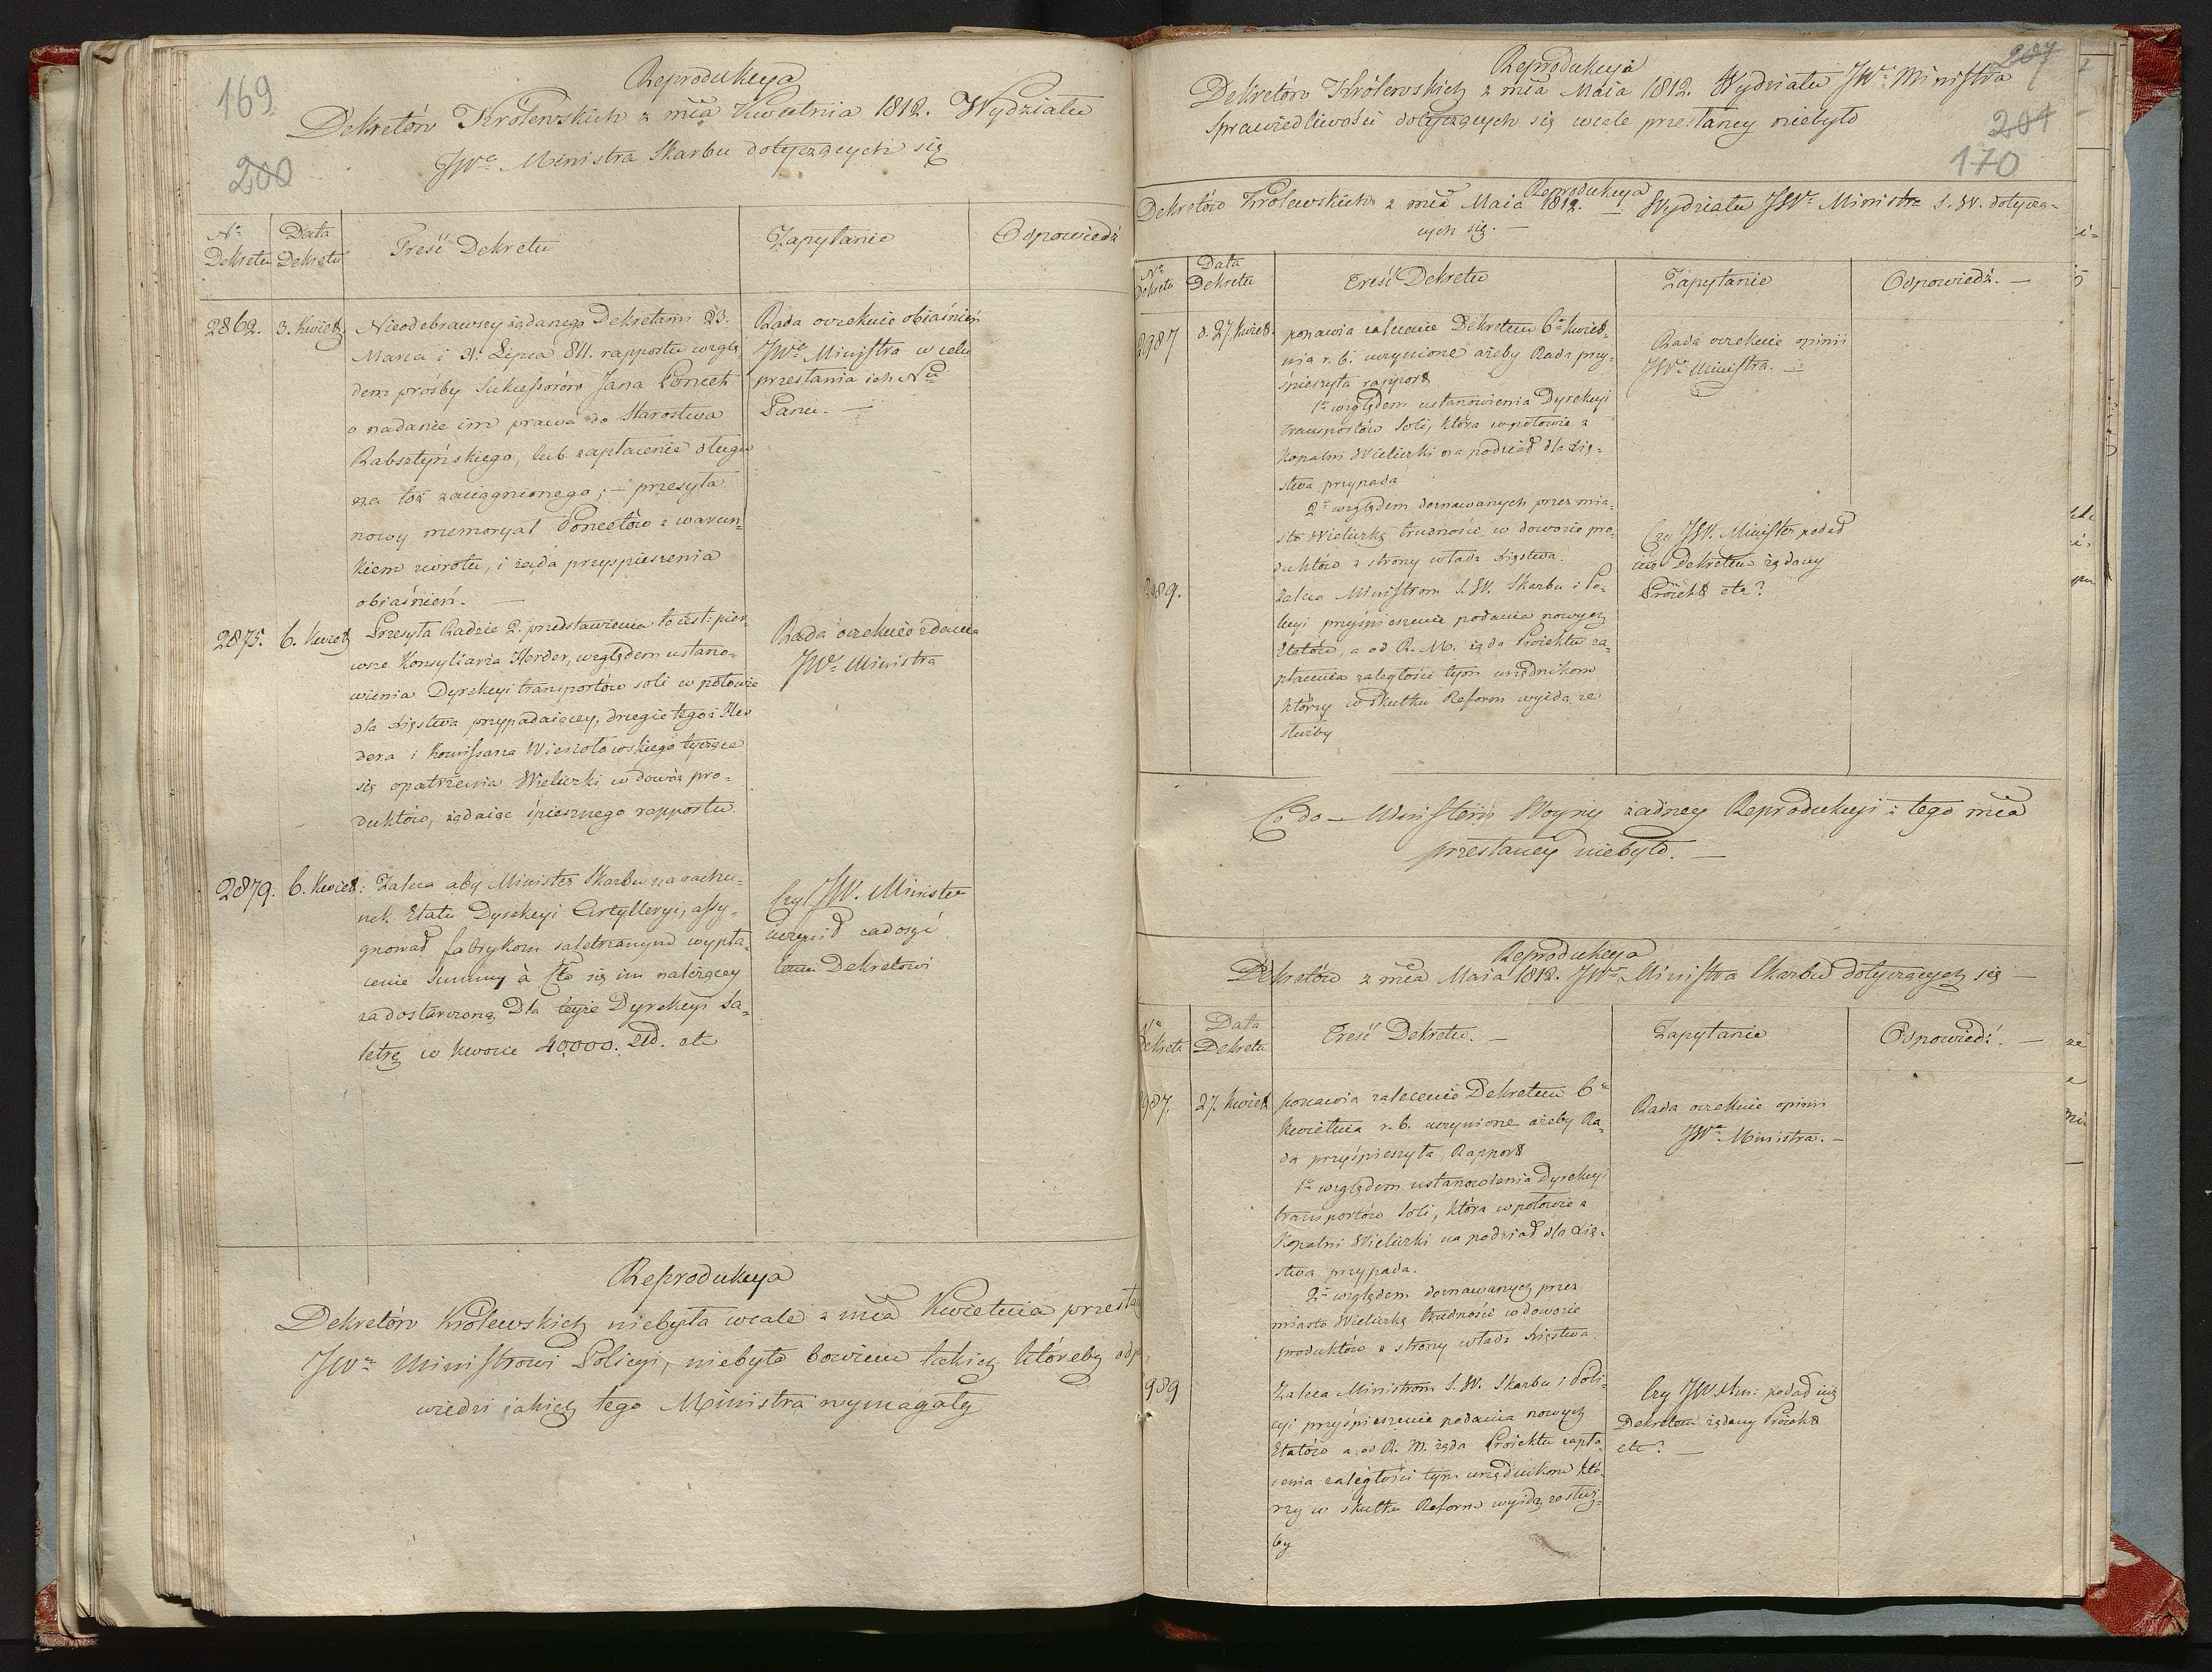 169
200
Reprodukcya
Dekretów Królewskich z mca Kwietnia 1812. Wydziału
JWo Ministra Skarbu dotyczących się
No Dekretu
Data Dekretu
Treść Dekretu
Zapytanie
Odpowiedź
2862.
3. Kwiet.
Nieodebrawszy żądanego Dekretami 23.
Marca i 31. Lipca 811. rapportu wzglę-
dem prośby Sukcessorów Jana Poncet
o nadanie im prawa do Starostwa
Rabsztyńskiego, lub zapłacenie długu
na toż zaciągnionego; – przesyła
nowy memoryał Poncetów z warun-
kiem zwrotu, i żąda przyspieszenia
obiaśnień. —
Rada oczekuie obiaśnień
JWo Ministra w celu
przesłania ich Nu
Panu. —
2875.
6. Kwiet.
Przesyła Radzie 2. przedstawienia to iest: pier-
wsze Konsyliarza Herder, względem ustano-
wienia Dyrekcyi transportów soli w połowie
dla Xięstwa przypadaiącey, drugie tegoż Her
dera i Kommissarza Wiesiołowskiego tyczące
się opatrzenia Wieliczki w dowóz pro-
duktów, żądaiąc śpiesznego rapportu.
Rada oczekuie zdania
JWo Ministra
2879.
6. Kwiet:
Zaleca aby Minister Skarbu na rachu-
nek Etatu Dyrekcyi Artylleryi, assy-
gnował fabrykom saletrzanym wypła-
cenie Summy à Cto się im należącey
za dostarczoną Dla teyże Dyrekcyi Sa-
letrę w kwocie 40,000. Zł. etc
Czy JW. Minister
uczynił zadosyć
temu Dekretowi
Reprodukcya
Dekretów Królewskich niebyła wcale z mca Kwietnia przesła
JWu Ministrowi Policyi, niebyło bowiem takich któreby odp
wiedzi iakiey tego Ministra wymagały
207
201
170
Reprodukcya
Dekretów Królewskich z mca Maia 1812. Wydziału JWo Ministra
Sprawiedliwości dotyczących się wcale przesłaney niebyło
Reprodukcya
Dekretów Królewskich z mca Maia 1812. — Wydziału JWo Ministra S. W. dotyczą-
cych się. —
No Dekretu
Data Dekretu
Treść Dekretu
Zapytanie
Odpowiedź. —
2987
d. 27. Kwiet.
ponawia zalecenie Dekretem 6o Kwiet-
nia r. b. uczynione ażeby Rada przy-
śpieszyła rapport
1o względem ustanowienia Dyrekcyi
transportów Soli, która w połowie z
Kopalni Wieliczki na podział dla Xię-
stwa przypada
2o względem doznawanych przez mia-
sto Wieliczkę trudności w dowozie pro-
duktów z strony władz Xięstwa.
Rada oczekuie opinii
JWo Ministra. —
2989.
Zaleca Ministrom S. W. Skarbu i Po-
licyi przyśpieszenie podania nowych
Etatów, a od R. M. żąda Proiektu za-
płacenia zaległości tym urzędnikom
którzy w skutku Reform wyidą ze
służby
Czy JW. Minister podał
iuż Dekretem żądany
Proiekt etc?
Co do Ministerii Woyny żadney Reprodukcyi z tego mca
przesłaney niebyło. —
Reprodukcya
Dekretów z mca Maia 1812. JWo Ministra Skarbu dotyczących się —
No Dekretu
Data Dekretu
Treść Dekretu. —
Zapytanie
Odpowiedź. —
987.
27. Kwiet
ponawia zalecenie Dekretem 6o
Kwietnia r. b. uczynione ażeby Ra-
da przyśpieszyła Rapport
1o względem ustanowienia Dyrekcyi
transportów Soli, która w połowie z
Kopalni Wieliczki na podział dla Xię-
stwa przypada.
2o względem doznawanych przez
miasto Wieliczkę trudności w dowozie
produktów z strony władz Xięstwa.
Rada oczekuie opinii
JWo Ministra. —
989
Zaleca Ministrom S. W. Skarbu i Poli-
cyi przyśpieszenie podania nowych
Etatów a od R. M. żąda Proiektu zapła-
cenia zaległości tym urzędnikom któ-
rzy w skutku Reform wyidą ze służ-
by
Czy JW Min: podał iuż
Dekretem żądany Proiekt
etc? —